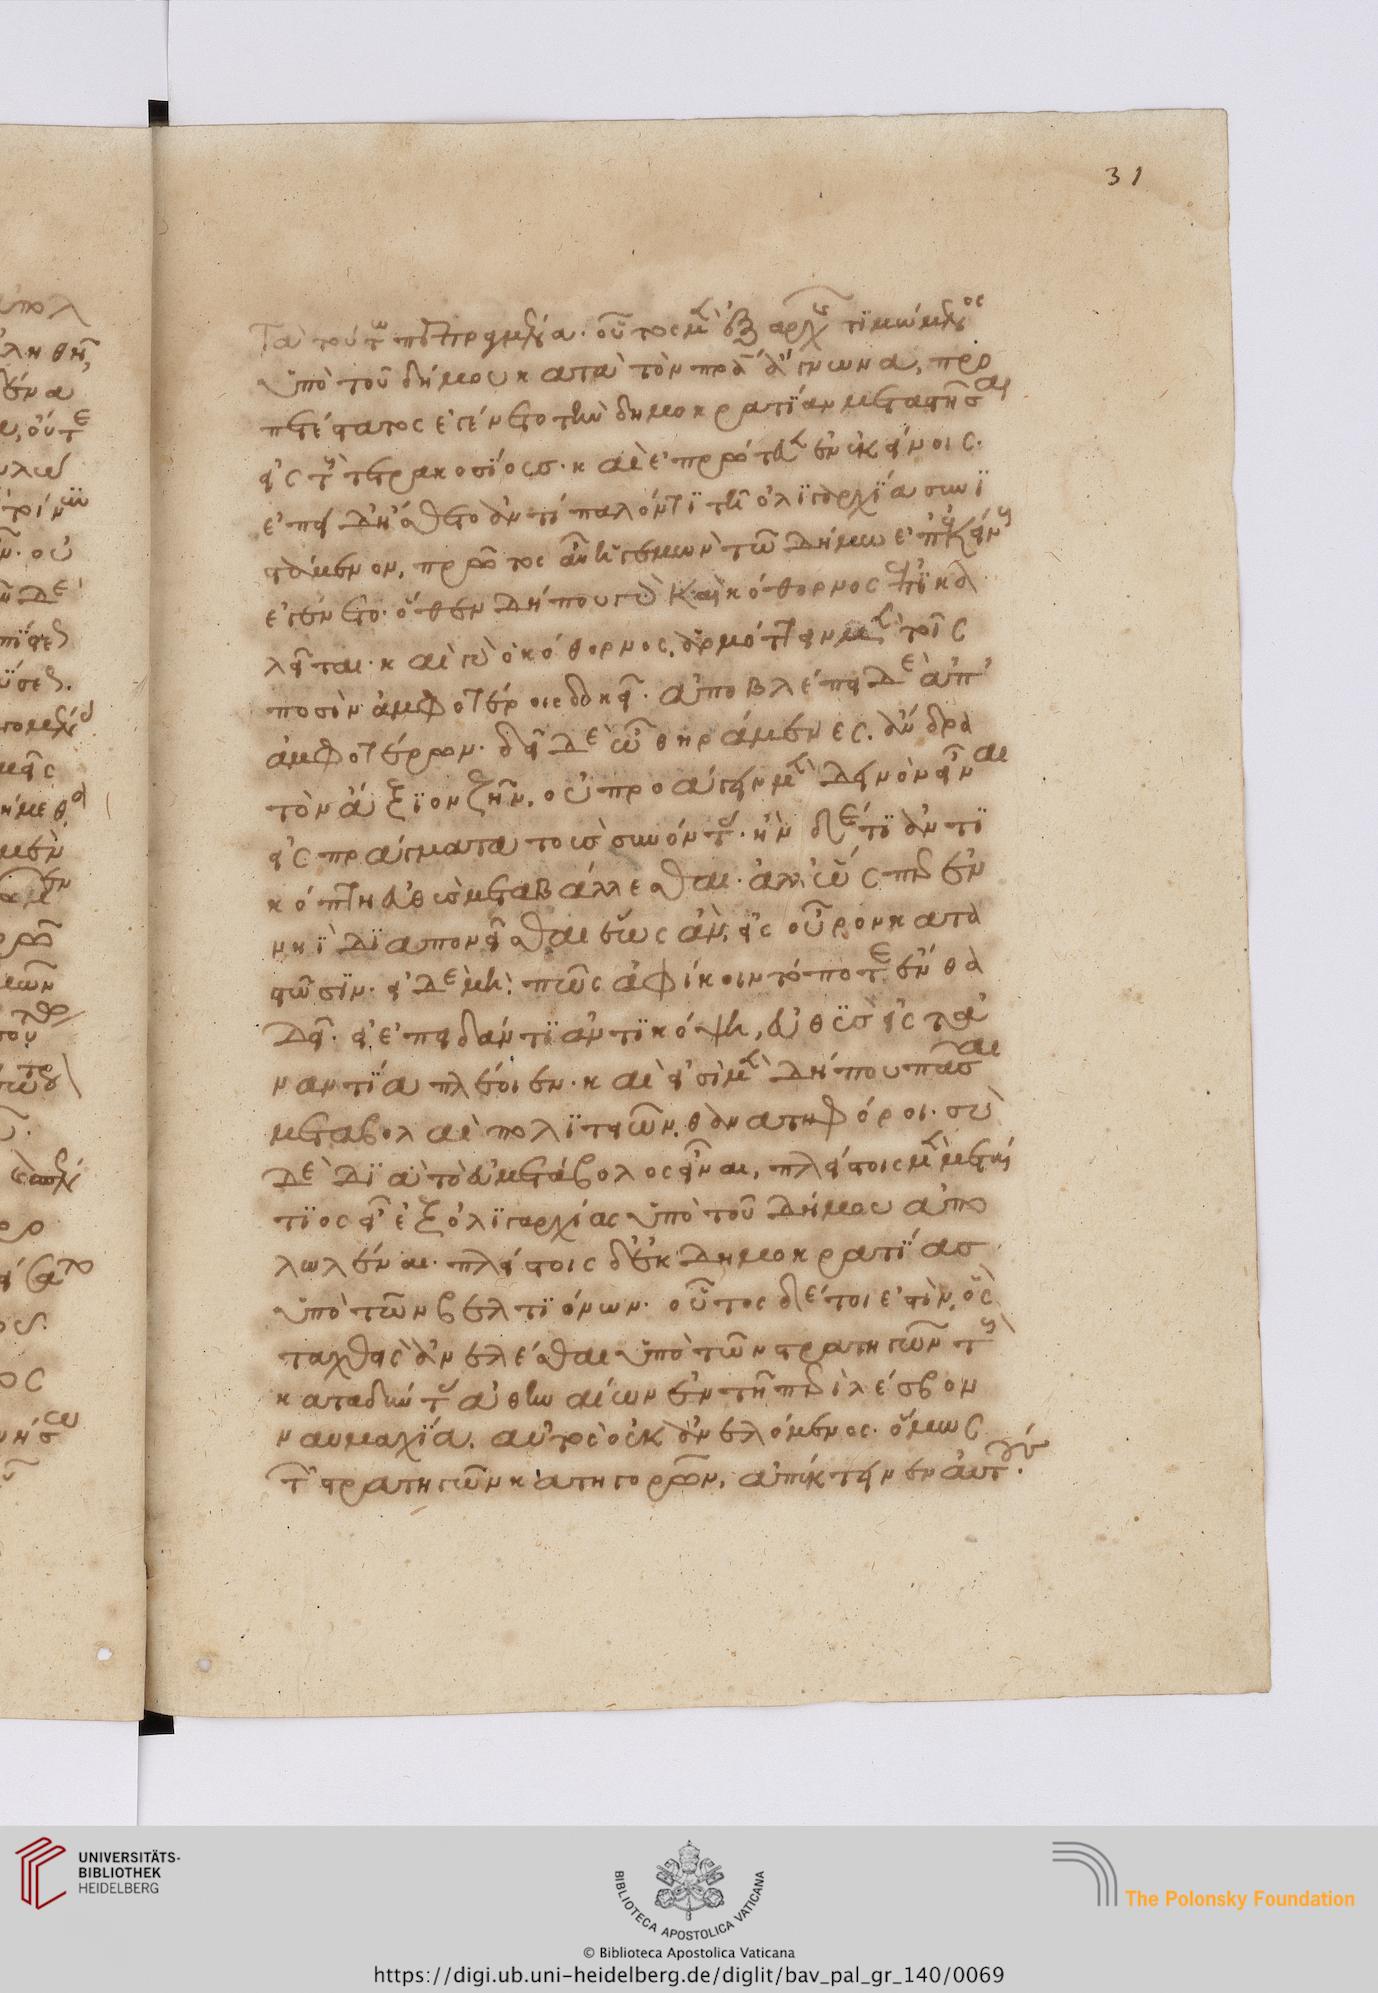 31
τὰ τούτω πεπραγμένα. οὗτος μὲν ἐξ ἀρχῆς τιμώμενος
ὑπὸ τοῦ δήμου κατὰ τὸν πρα ἅγνωνα, προ
πετέστατος ἐγένετο τὴν δημοκρατίαν μεταστῆσαι
εἰς τοὺς τετρακοσίους. καὶ ἐπρώτευεν ἐν ἐκείνοις.
ἐπεὶ δ' ᾔσθετο ἀντίπαλόν τι τῆ ὀλιγαρχία συνι
στάμενον, πρῶτος αὖ ἡγεμὼν τῶ δήμω ἐπ' ἐκείνους
ἐγένετο. ὅθεν δήπου γὰρ καὶ κόθορνος ἐπικα
λεῖται. καὶ γὰρ ὁ κόθορνος, ἁρμόττειν μὲν τοῖς
ποσὶν ἀμφοτέροις δοκεῖ. ἀποβλέπει δὲ ἀπ'
ἀμφοτέρων. δεῖ δὲ ὦ θηράμενες. ἄνδρα
τὸν ἄξιον ζῆν. οὐ προάγειν μὲν δεινὸν εἶναι
εἰς πράγματα τοὺς συνόντας. ἢν δέ τι ἀντι
κόπτη εὐθὺς μεταβάλλεσθαι. ἀλλ' ὡς περ ἐν
νηὶ διαπονεῖσθαι ἕως ἂν, εἰς οὖρον κατα
στῶσιν. εἰ δὲ μή, πῶς ἀφίκοιντό ποτε ἔνθα
δεῖ. εἰ ἐπειδάν τι ἀντικόψη, εὐθὺς εἰς τἀ
ναντία πλέοιεν. καὶ εἰσὶ μὲν δήπου πᾶσαι
μεταβολαὶ πολιτειῶν, θανατηφόροι. σὺ
δὲ διὰ τὸ εὐμετάβολος εἶναι, πλείστοις μὲν μεταί
τιος εἶ ἐξ ὀλιγαρχίας ὑπὸ τοῦ δήμου ἀπο
λωλέναι. πλείστοις δ' ἐκ δημοκρατίας
ὑπὸ τῶν βελτιόνων. οὗτος δέ τοι ἐστὶν, ὃς
ταχθεὶς ἀνελέσθαι ὑπὸ τῶν στρατηγῶν τοὺς
καταδύντας ἀθηναίων ἐν τῆ περὶ λέσβον
ναυμαχία. αὐτὸς οὐκ ἀνελόμενος. ὅμως
τῶν στρατηγῶν κατηγορῶν, ἀπέκτεινεν αὐτούς.
UNIVERSITÄTS-
BIBLIOTHEK
HEIDELBERG
BIBLIOTECA APOSTOLICA VATICANA
© Biblioteca Apostolica Vaticana
The Polonsky Foundation
https://digi.ub.uni-heidelberg.de/diglit/bav_pal_gr_140/0069